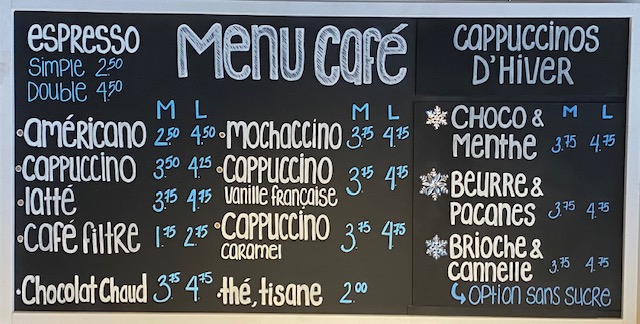 Menu Café
espresso
Simple 2.50
Double 4.50
M L
américano 2.50 4.50
cappuccino 3.50 4.25
latté 3.75 4.75
café filtre 1.75 2.75
Chocolat Chaud 3.75 4.75
M L
mochaccino 3.75 4.75
cappuccino 3.75 4.75
vanille française
cappuccino 3.75 4.75
caramel
thé, tisane 2.00
cappuccinos
d'hiver
M L
choco &
menthe 3.75 4.75
beurre &
pacanes 3.75 4.75
brioche &
cannelle 3.75 4.75
option sans sucre